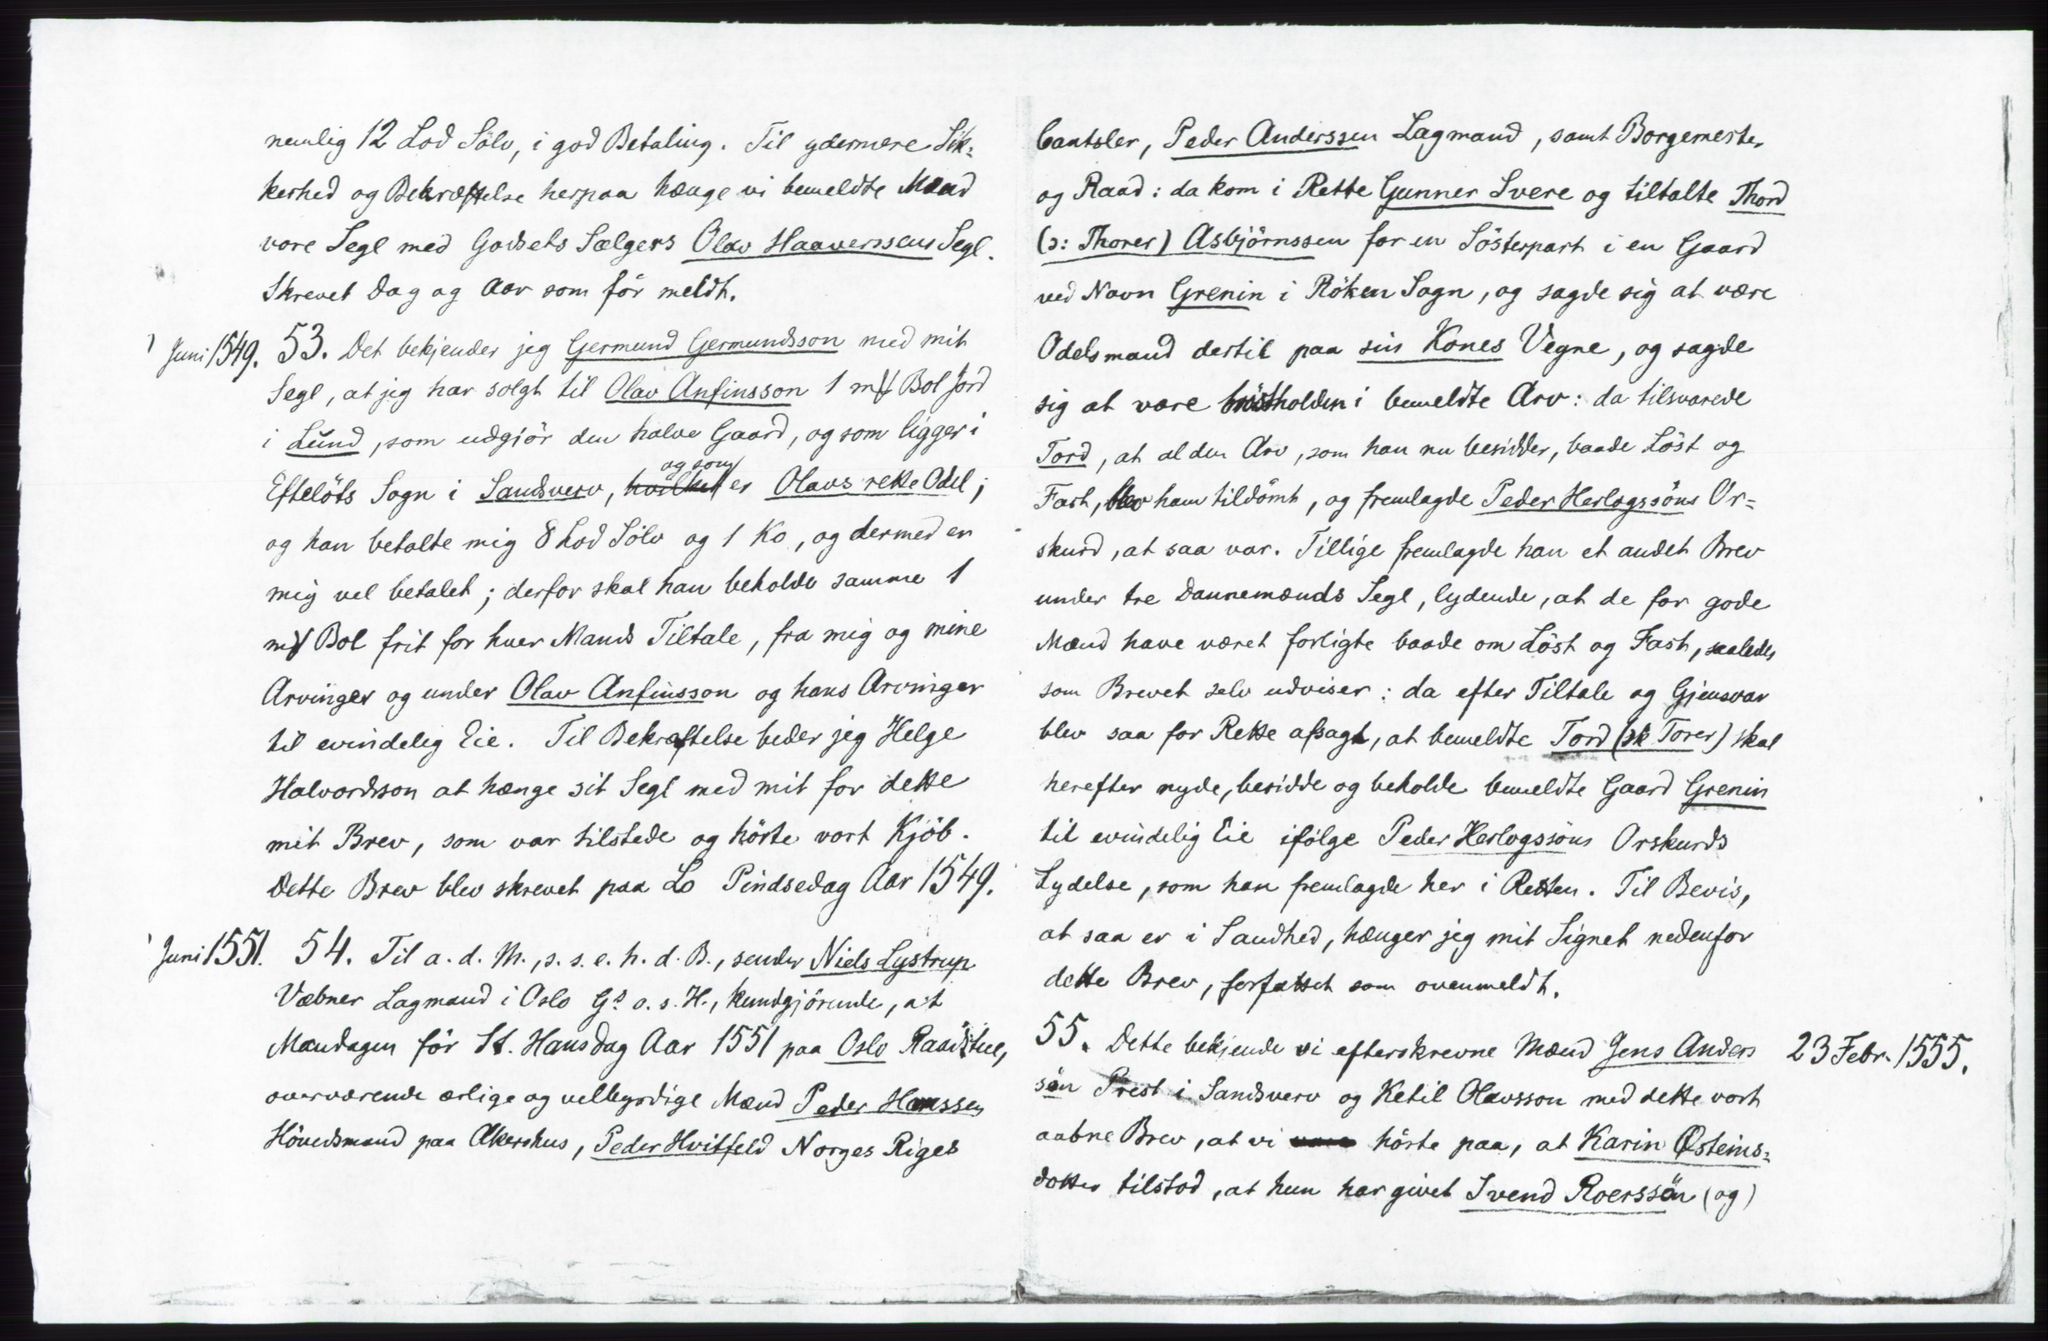 nemlig 12 Lod Sölv, i god Betaling. Til ydermere Sik-
kerhed og Bekræftelse herpaa hænge vi bemeldte Mænd
vore Segl med Godsets Sælgers Olav Haaverssens Segl.
Skrevet Dag og Aar som för meldt.
Juni 1549. 53. Det bekjender jeg Germund Germundsson med mit
Segl, at jeg har solgt til Olav Anfinsson 1 mk Bol Jord
i Lund, som udgjör den halve Gaard, og som ligger i
Efteløts Sogn i Sandsverv, hvilket og som er Olavs rette Odel;
og han betalte mig 8 Lod Sölv og 1 Ko, og dermed er
mig vel betalet; derfor skal han beholde samme 1
mk Bol frit for hver Mands Tiltale, fra mig og mine
Arvinger og under Olav Anfinsson og hans Arvinger
til evindelig Eie. Til Bekræftelse beder jeg Helge
Halvordsson at hænge sit Segl med mit for dette
mit Brev, som var tilstede og hörte vort Kjöb.
Dette Brev blev skrevet paa Lo Pindsedag Aar 1549.
Juni 1551. 54. Til a. d. M., s. s. e. h. d. B., sender Niels Lystrup
Væbner Lagmand i Oslo Gs o. s. H., kundgjörende, at
Mandagen för St. Hansdag Aar 1551 paa Oslo Raadstue,
overværende ærlige og velbyrdige Mænd Peder Hanssen
Hövedsmand paa Akershus, Peder Hvitfeld Norges Riges
Cantsler, Peder Anderssen Lagmand, samt Borgemester
og Raad: da kom i Rette Gunner Svere og tiltalte Thord
(ɔ: Thorer) Asbjörnssen for en Sösterpart i en Gaard
ved Navn Grenin i Röken Sogn, og sagde sig at være
Odelsmand dertil paa sin Kones Vegne, og sagde
sig at være bröstholden i bemeldte Arv: da tilsvarede
Tord, at al den Arv, som han nu besidder, baade Löst og
Fast, blev ham tildömt, og fremlagde Peder Herlogssöns Or-
skurd, at saa var. Tillige fremlagde han et andet Brev
under tre Dannemænds Segl, lydende, at de for gode
Mænd have været forligte baade om Löst og Fast, saaledes
som Brevet selv udviser: da efter Tiltale og Gjensvar
blev saa for Rette afsagt, at bemeldte Tord (sk Torer) skal
herefter nyde, besidde og beholde bemeldte Gaard Grenin
til evindelig Eie ifölge Peder Herlogssöns Orskurds
Lydelse, som han fremlagde her i Retten. Til Bevis,
at saa er i Sandhed, hænger jeg mit Signet nedenfor
dette Brev, forfattet som ovenmeldt.
55. Dette bekjende vi efterskrevne Mænd Jens Anders 23 Febr. 1555.
sön Prest i Sandsverv og Ketil Olavsson med dette vort
aabne Brev, at vi hörte paa, at Karin Østeins-
dotter tilstod, at hun har givet Svend Roerssön (og)